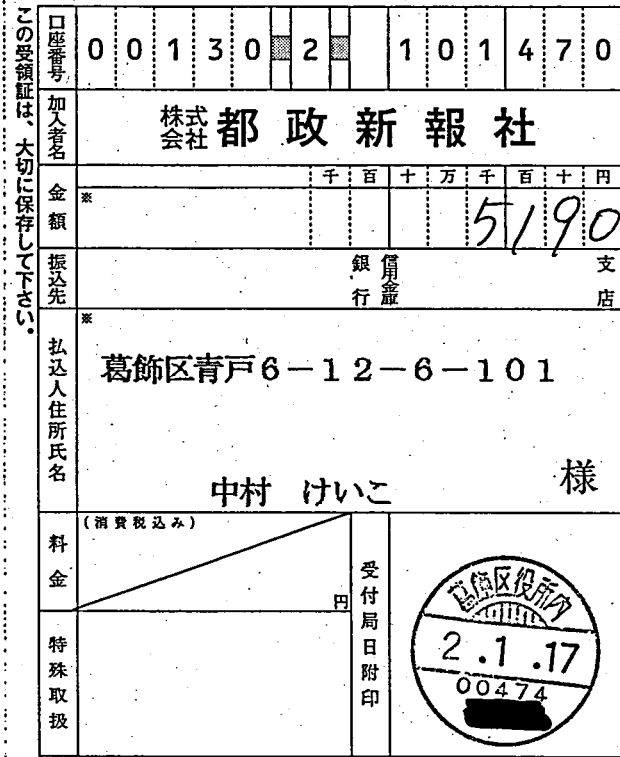 この受領証は、大切に保存して下さい。
口座番号 00130 2 101470
加入者名 株式会社 都政新報社
金額 ※ 千百十万千百十円
5190
振込先 銀行 信用金庫 支店
払込人住所氏名 ※
葛飾区青戸6−12−6−101
中村 けいこ 様
料金 (消費税込み) 円
受付局日附印
葛飾区役所内
2.1.17
00474
特殊取扱